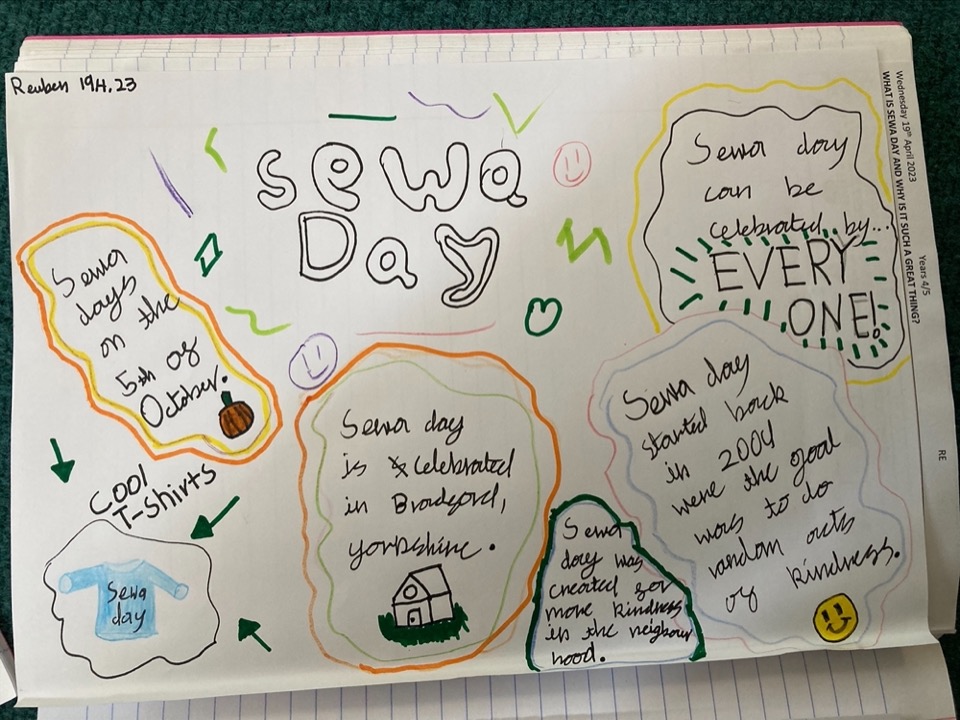 Reuben 19.4.23
Sewa
Day
Sewa
days
on the
5th of
October.
Sewa day
can be
celebrated by...
EVERY
ONE!
COOL
T-Shirts
Sewa
day
Sewa day
is celebrated
in Bradford,
yorkshire.
Sewa
day was
created for
more kindness
in the neighbour
hood.
Sewa day
started back
in 2004
were the goal
was to do
random acts
of kindness.
Wednesday 19th April 2023
Years 4/5
RE
WHAT IS SEWA DAY AND WHY IS IT SUCH A GREAT THING?